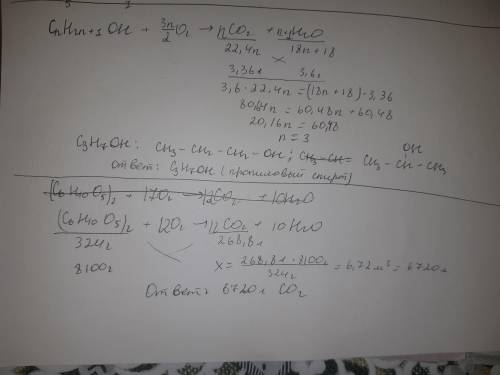 CnH2n+1 OH + 3n/2 O2 → nCO2 + n+1 H2O
22,4n 18n+18
3,36л 3,6г
3,6·22,4n = (18n+18)·3,36
80,64n = 60,48n + 60,48
20,16n = 60,48
n = 3
C3H7OH: CH3-CH2-CH2-OH; CH3-CH- CH3-CH-CH3
OH
Ответ: C3H7OH (пропиловый спирт)
(C6H10O5)2 + 17O2 → 12CO2 + 10H2O
(C6H10O5)2 + 12O2 → 12CO2 + 10H2O
324г 268,8л
8100г x = 268,8л·8100г / 324г = 6,72м³ = 6720л
Ответ: 6720л CO2